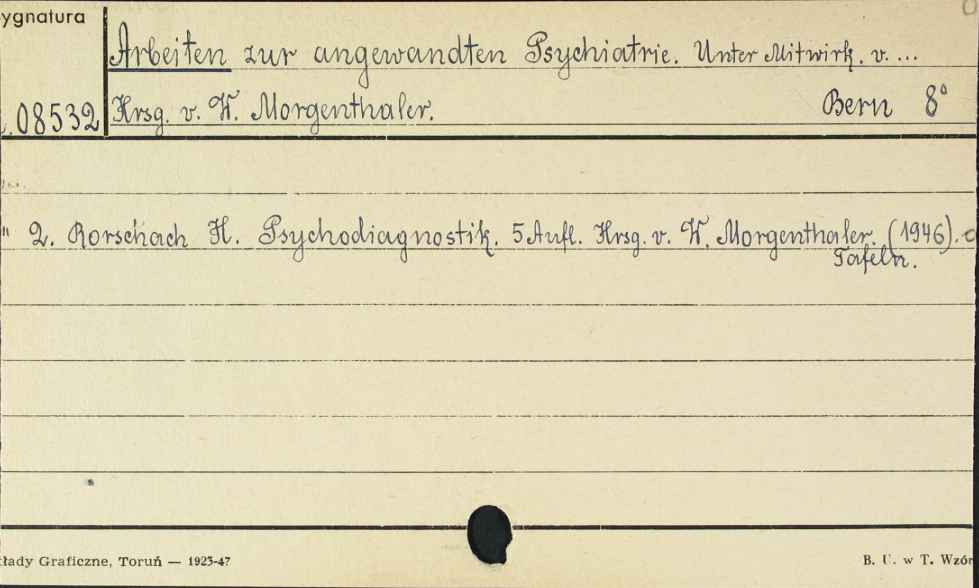 ygnatura
Arbeiten zur angewandten Psychiatrie. Unter Mitwirk. v. ...
08532
Hrsg. v. W. Morgenthaler.
Bern 8°
" 2. Rorschach H. Psychodiagnostik. 5 Aufl. Hrsg. v. W. Morgenthaler. (1946).
Tafeln.
kłady Graficzne, Toruń — 1923-47
B. U. w T. Wzór